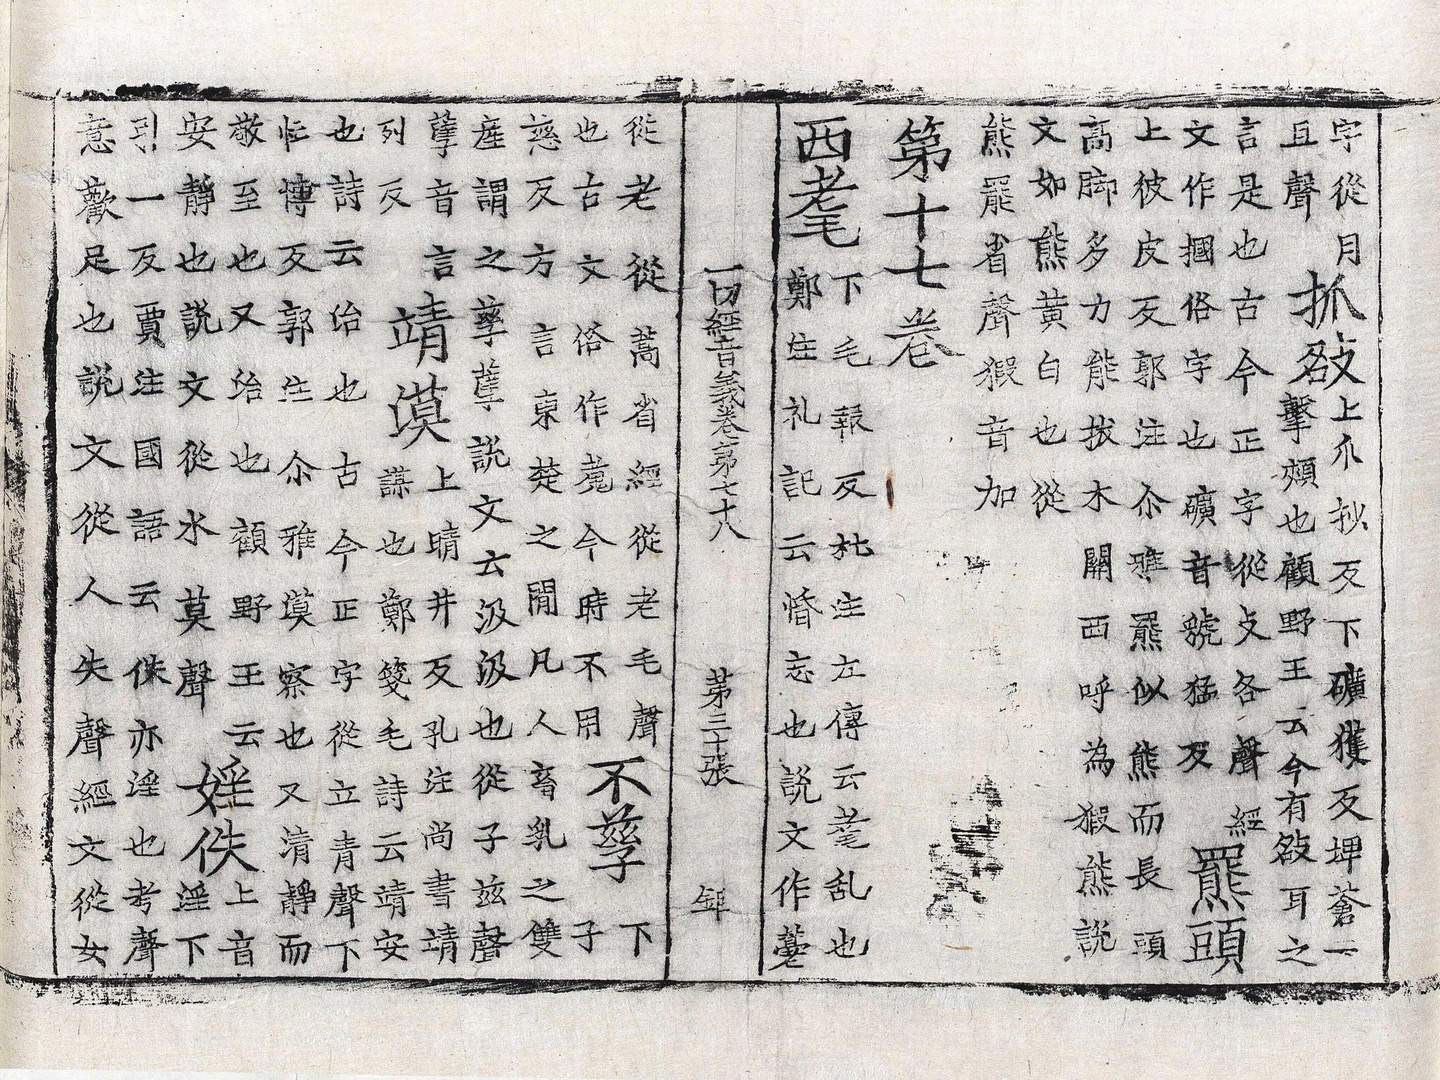 字從月
且聲
抓敋
上爪抄反下礦獲反埤蒼云
擊頰也顧野王云今有敋耳之
言是也古今正字從攴各聲經
文作摑俗字也礦音號猛反
羆頭
上彼皮反郭注尒雅羆似熊而長頭
高脚多力能拔木關西呼為猳熊說
文如熊黃白也從
熊罷省聲猳音加
第十七卷
西耄
下毛報反杜注左傳云耄乱也
鄭注礼記云惛忘也說文作薹
一切經音義卷第七十八 第三十張
從老從蒿省經從老毛聲
也古文俗作蒐今時不用
不孳
下子
慈反方言東楚之間凡人畜乳之雙
產謂之孳孳說文云汲汲也從子茲聲
孽音言
列反
靖漠
上晴井反孔注尚書靖
謀也鄭箋毛詩云靖安
也詩云治也古今正字從立青聲下
忙博反郭注尒雅漠察也又清靜而
敬至也又治也顧野王云
安靜也說文從水莫聲
婬佚
上音
淫下
引一反賈注國語云佚亦淫也考聲
意歡足也說文從人失聲經文從女